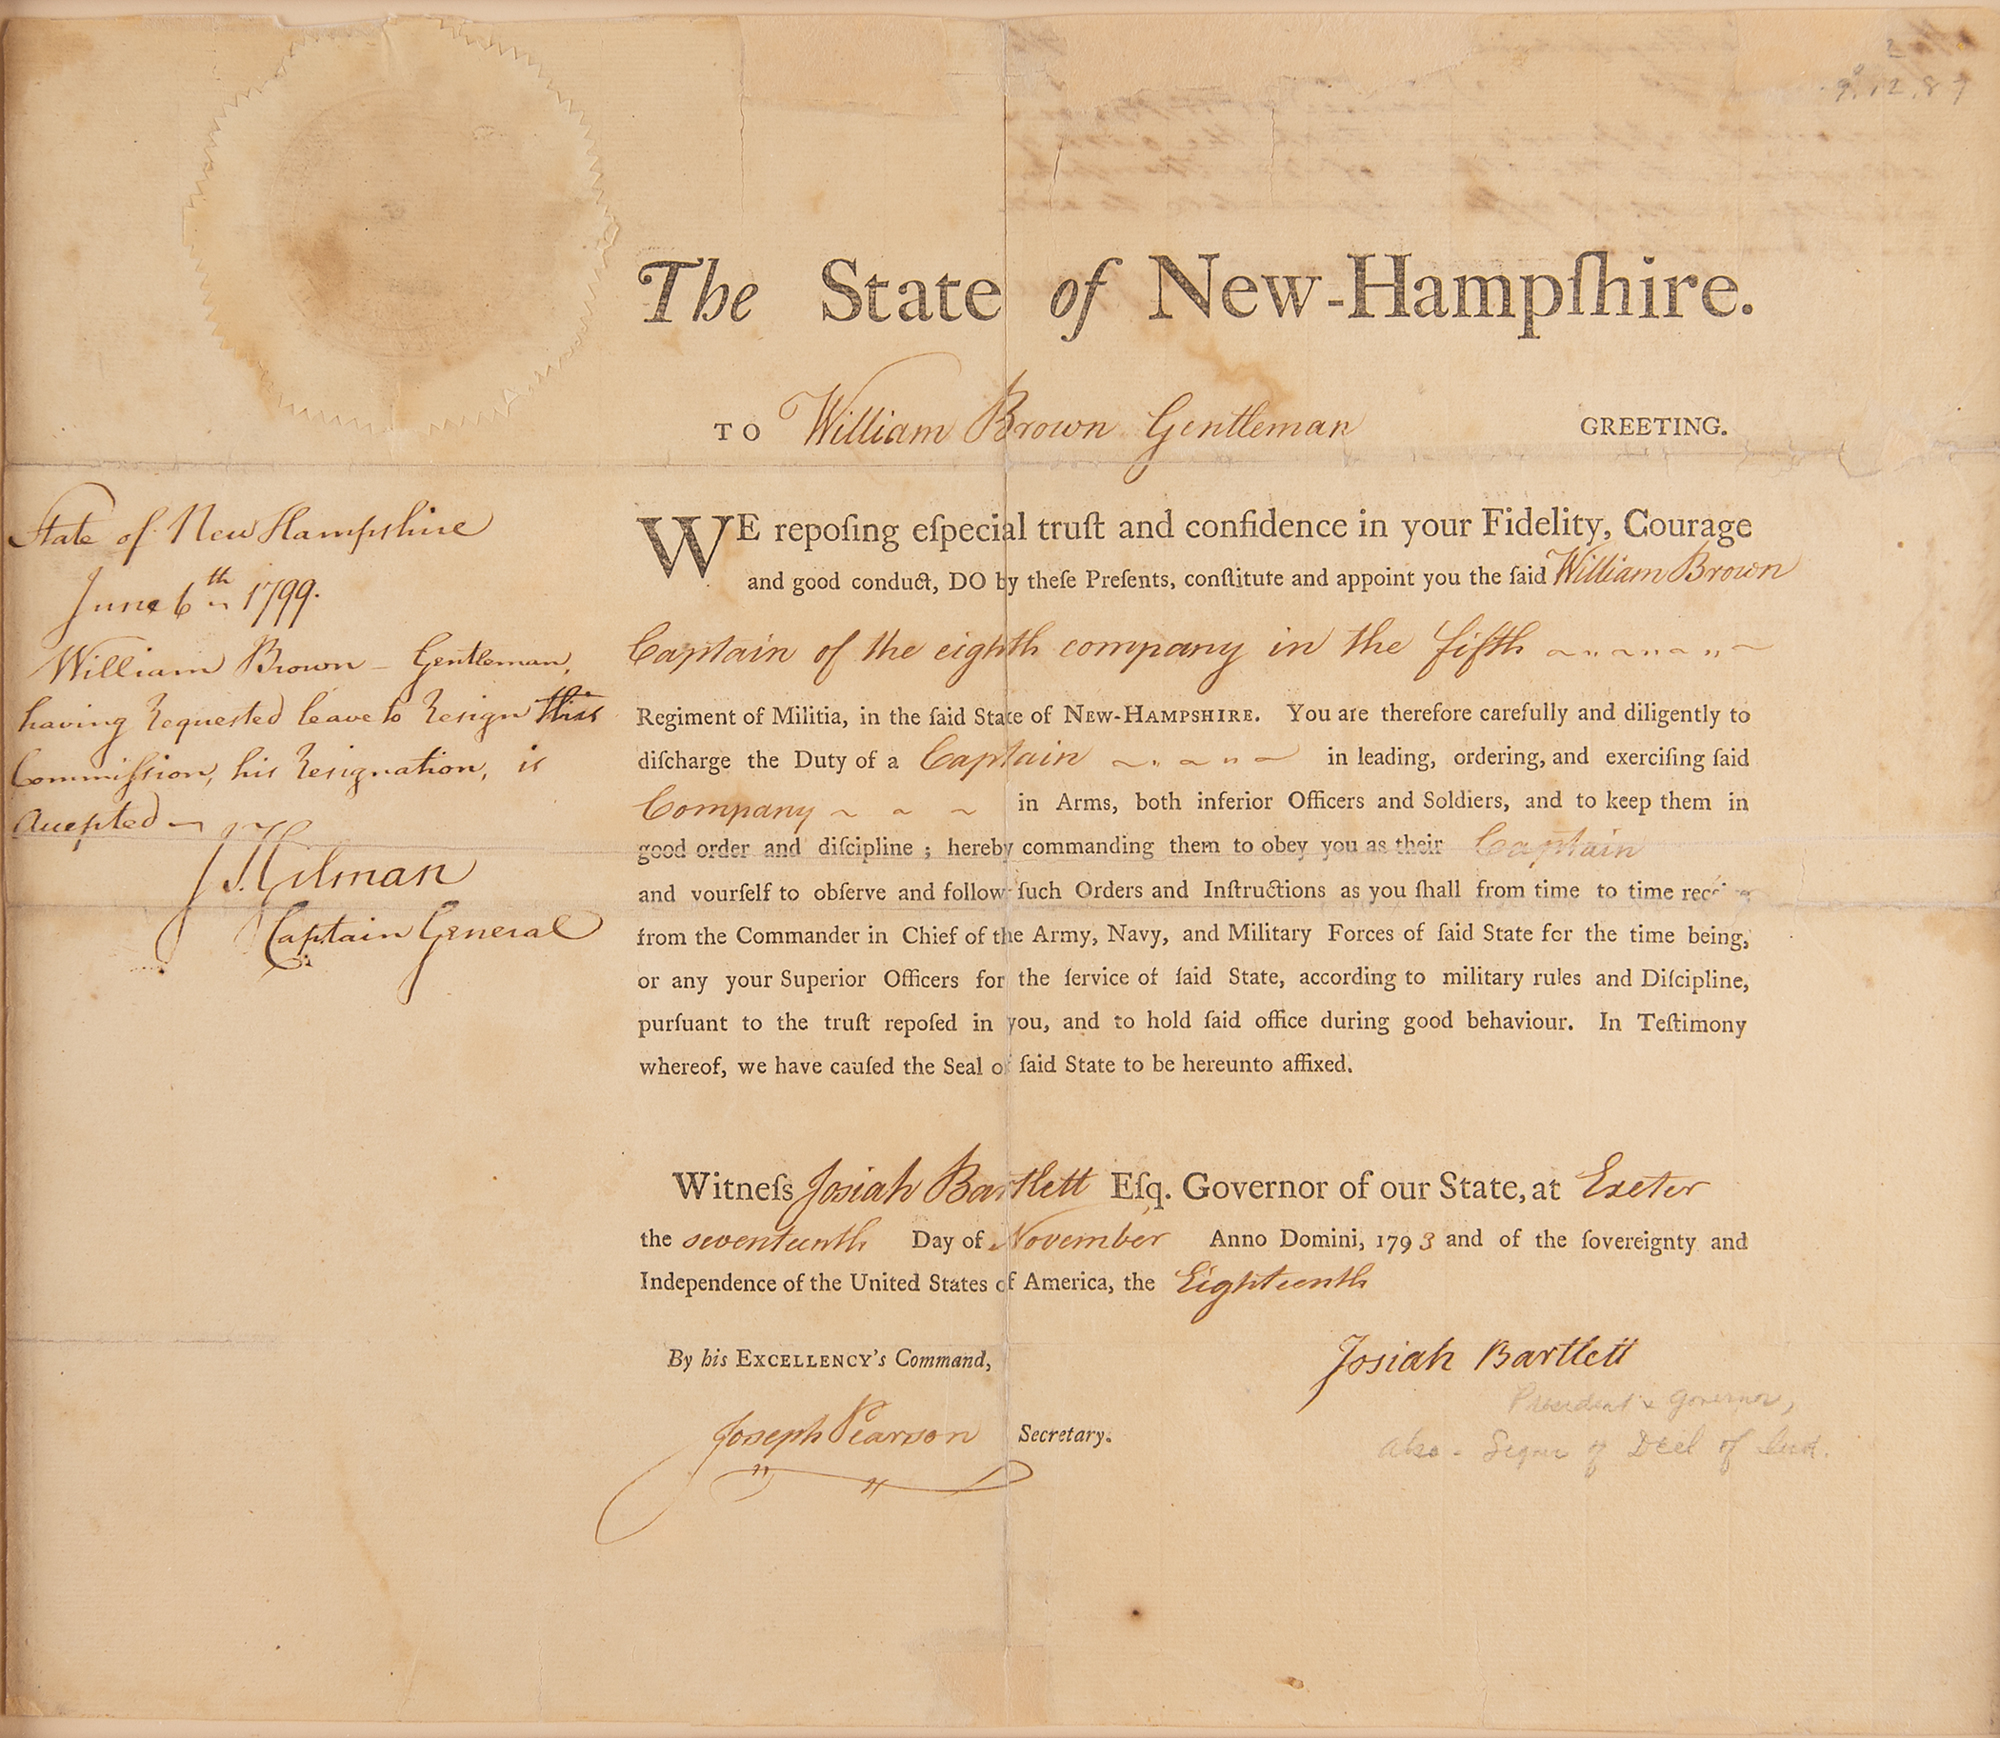 The State of New-Hampſhire.
TO William Brown Gentleman GREETING.
WE repoſing eſpecial truſt and confidence in your Fidelity, Courage
and good conduct, DO by theſe Preſents, conſtitute and appoint you the ſaid William Brown
Captain of the eighth company in the fifth
Regiment of Militia, in the ſaid State of NEW-HAMPSHIRE. You are therefore carefully and diligently to
diſcharge the Duty of a Captain in leading, ordering, and exerciſing ſaid
Company in Arms, both inferior Officers and Soldiers, and to keep them in
good order and diſcipline ; hereby commanding them to obey you as their Captain
and yourſelf to obſerve and follow ſuch Orders and Inſtructions as you ſhall from time to time
from the Commander in Chief of the Army, Navy, and Military Forces of ſaid State for the time being,
or any your Superior Officers for the ſervice of ſaid State, according to military rules and Diſcipline,
purſuant to the truſt repoſed in you, and to hold ſaid office during good behaviour. In Teſtimony
whereof, we have cauſed the Seal of ſaid State to be hereunto affixed.
Witneſs Josiah Bartlett Eſq. Governor of our State, at Exeter
the seventeenth Day of November Anno Domini, 1793 and of the ſovereignty and
Independence of the United States of America, the Eighteenth
By his EXCELLENCY's Command,
Josiah Bartlett
President & Governor,
Joseph Pearson Secretary.
Also - Signer of Decl of Ind.
State of New Hampshire
June 6th 1799.
William Brown - Gentleman,
having Requested leave to Resign this
Commiſsion, his Resignation, is
Accepted
J T Gilman
Captain General